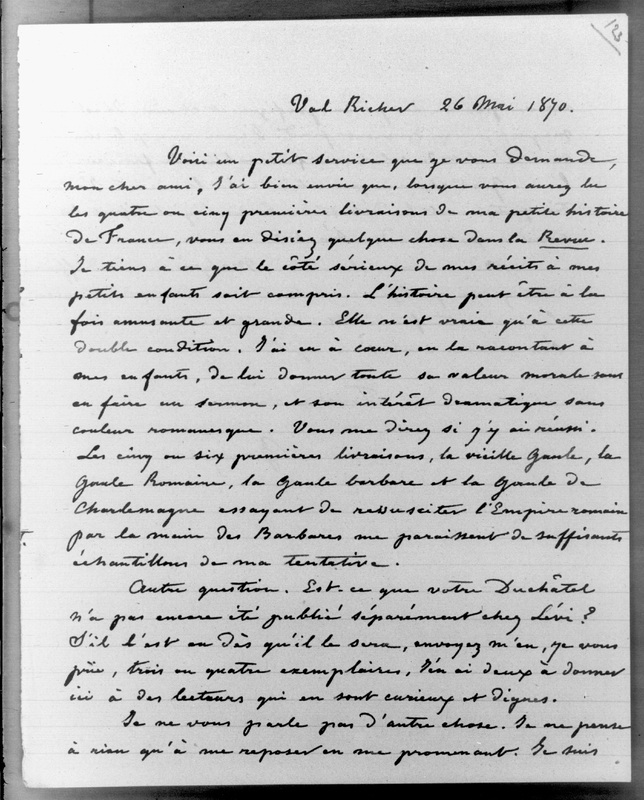 123
Val Richer 26 Mai 1870.
Voici un petit service que je vous demande,
mon cher ami, J'ai bien envie que, lorsque vous aurez lu
les quatre ou cinq premières livraisons de ma petite histoire
de France, vous en disiez quelque chose dans la Revue.
Je tiens à ce que le côté sérieux de mes récits à mes
petits enfants soit compris. L'histoire peut être à la
fois amusante et grande. Elle n'est vraie qu'à cette
double condition. J'ai eu à cœur, en la racontant à
mes enfants, de lui donner toute sa valeur morale sans
en faire un sermon, et son intérêt dramatique sans
couleur romanesque. Vous me direz si j'y ai réussi.
Les cinq ou six premières livraisons, la vieille Gaule, la
Gaule Romaine, la Gaule barbare et la Gaule de
Charlemagne essayant de ressusciter l'Empire romain
par la main des Barbares me paraissent de suffisants
échantillons de ma tentative.
Autre question. Est-ce que votre Duchâtel
n'a pas encore été publié séparément chez Lévi?
S'il l'est ou dès qu'il le sera, envoyez m'en, je vous
prie, trois ou quatre exemplaires, J'en ai deux à donner
ici à des lecteurs qui en sont curieux et dignes.
Je ne vous parle pas d'autre chose. Je ne pense
à rien qu'à me reposer en me promenant. Je suis